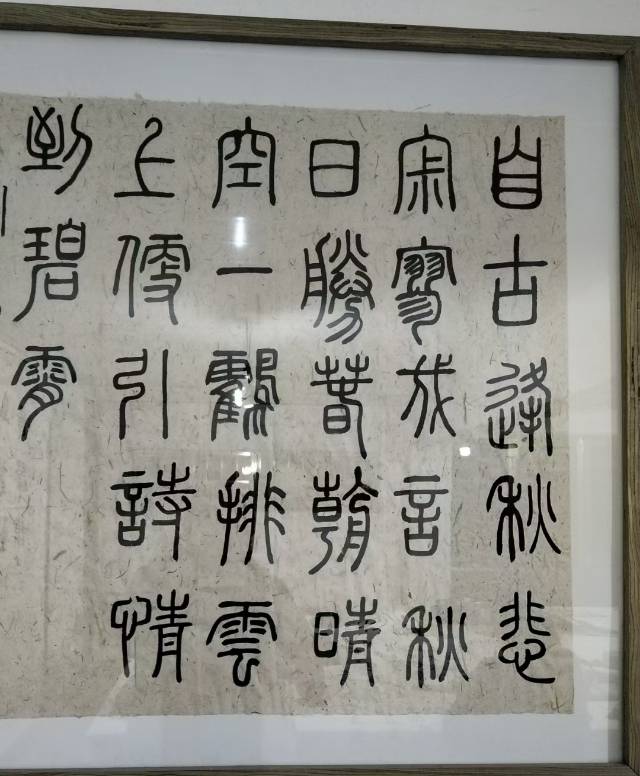 自古逢秋悲
寂寥我言秋
日勝春朝晴
空一鶴排雲
上便引詩情
到碧霄